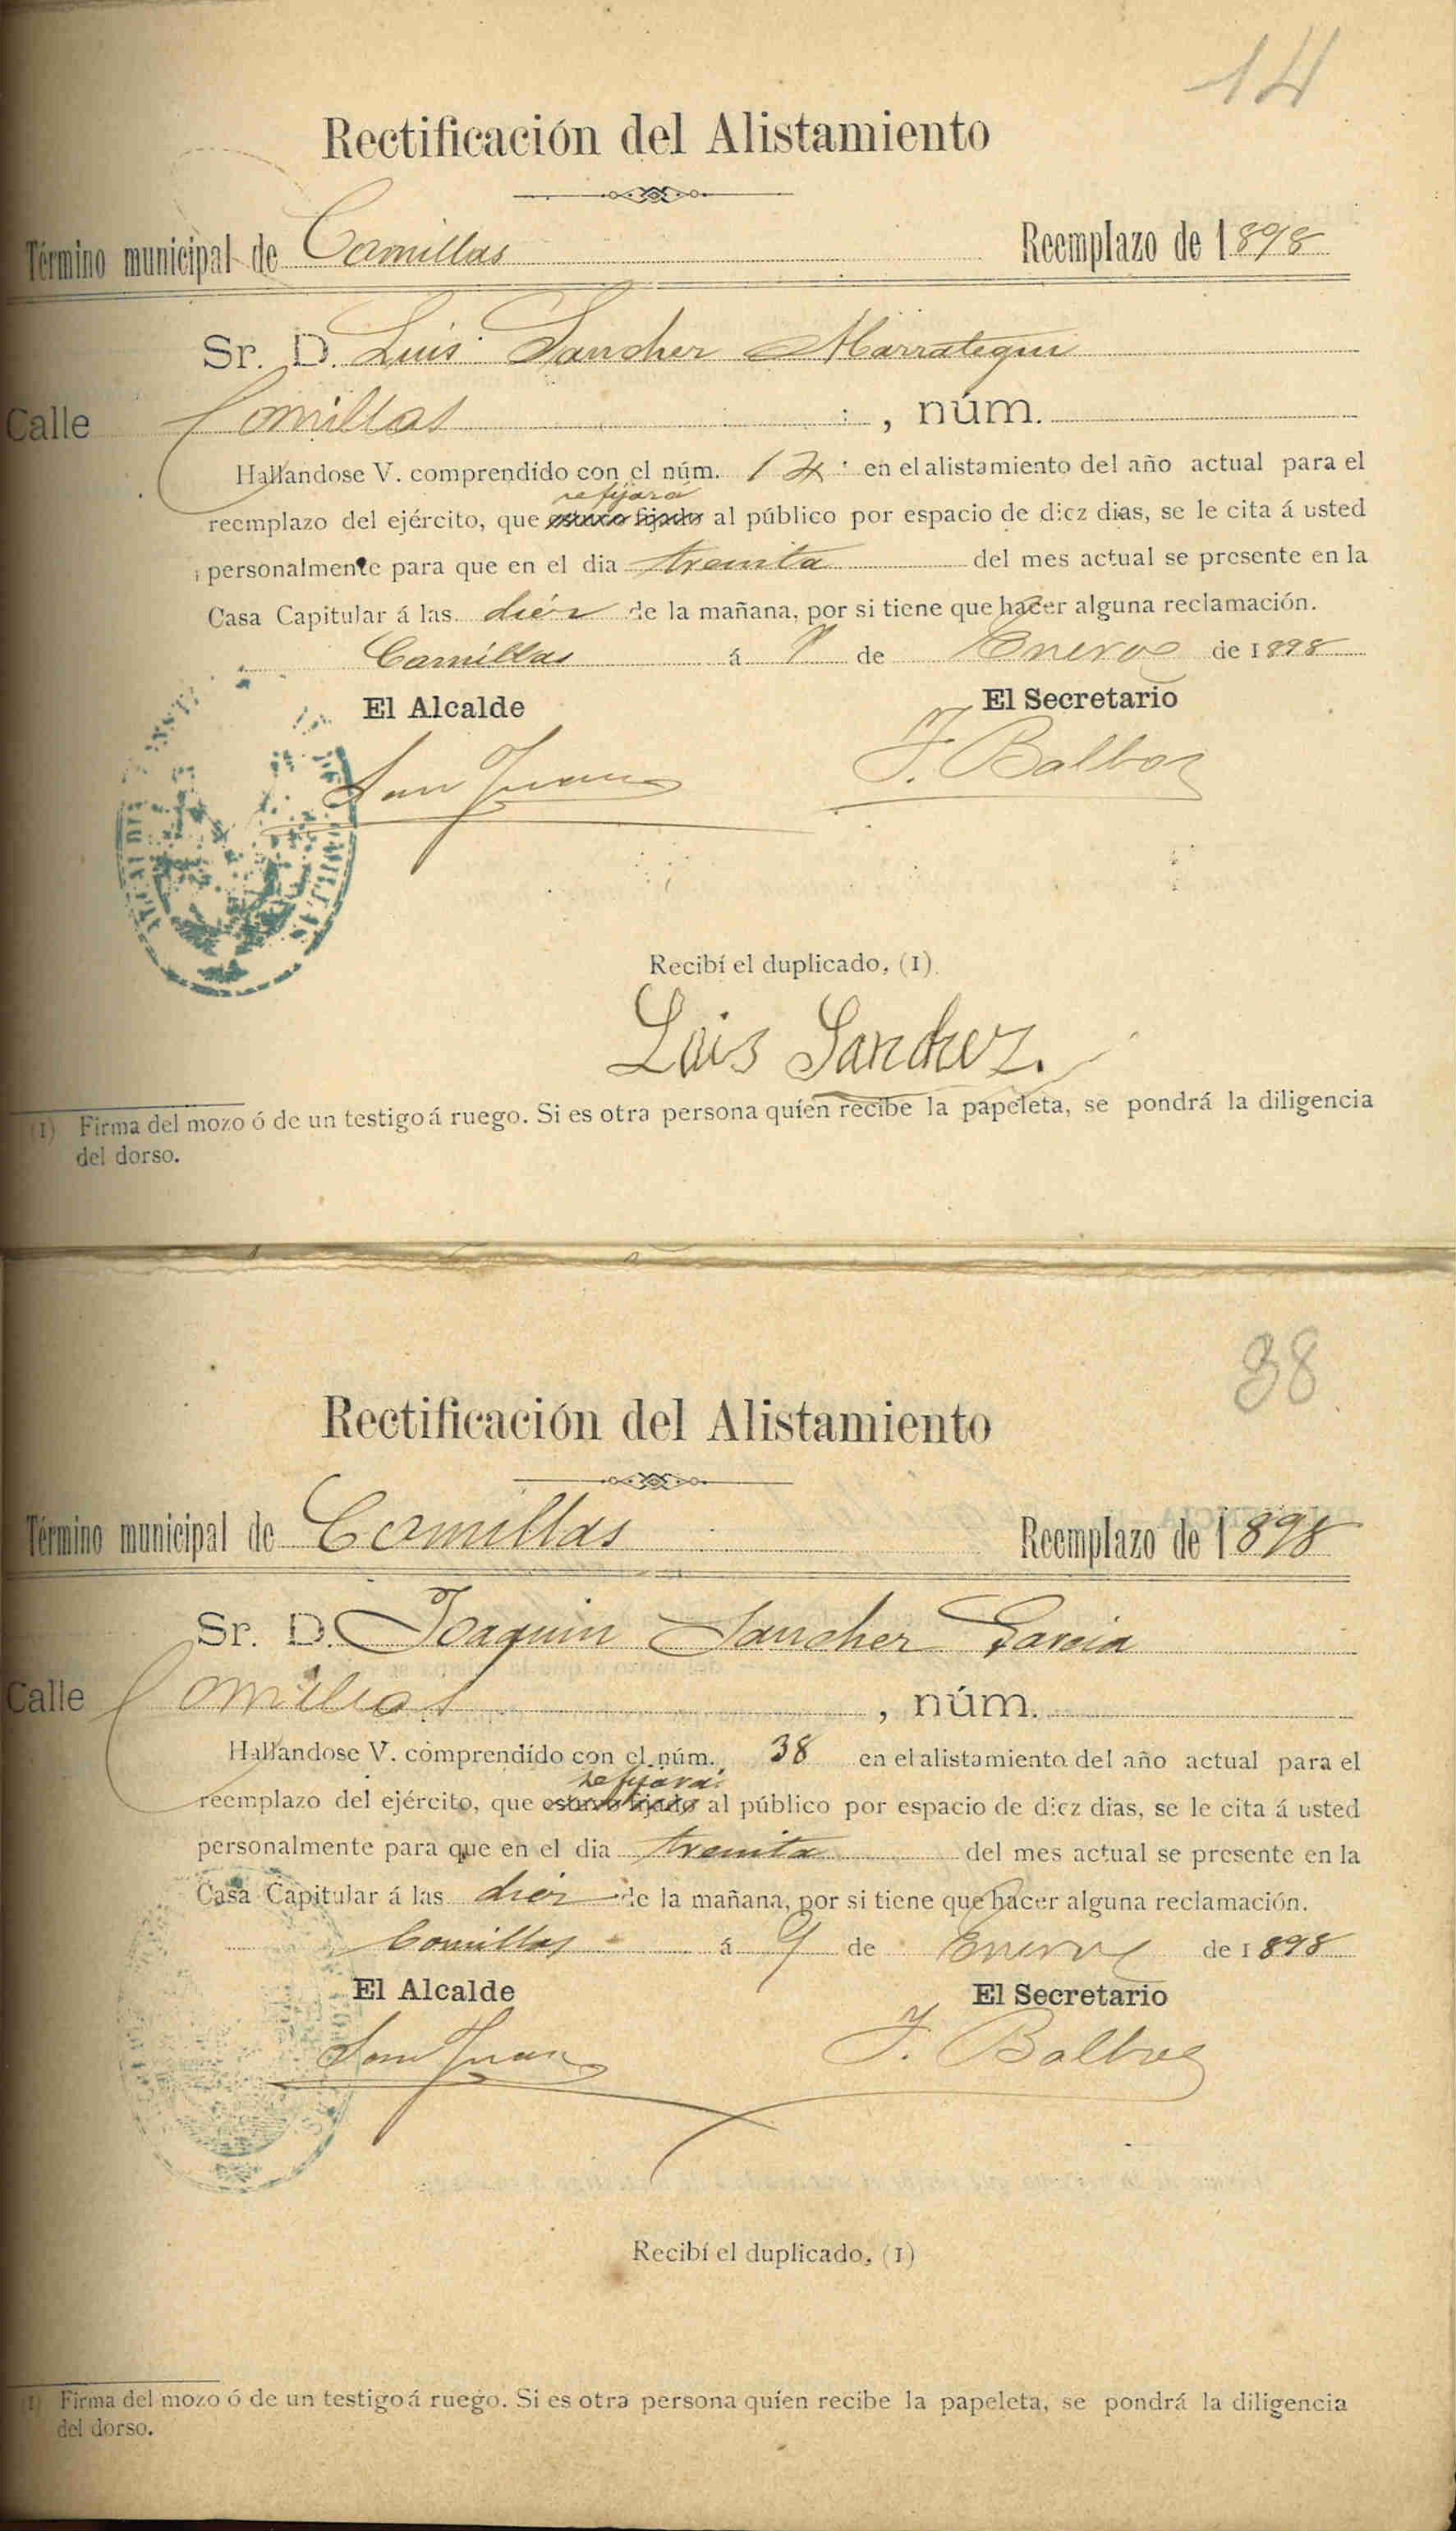 14
Rectificación del Alistamiento
Término municipal de Comillas Reemplazo de 1898
Sr. D. Luis Sanchez Marrategui
Calle Comillas , núm.
Hallandose V. comprendido con el núm. 14 en el alistamiento del año actual para el
se fijará
reemplazo del ejército, que estuvo fijado al público por espacio de diez dias, se le cita á usted
personalmente para que en el dia treinta del mes actual se presente en la
Casa Capitular á las diéz de la mañana, por si tiene que hacer alguna reclamación.
Comillas á 9 de Enero de 1898
El Alcalde El Secretario
San Juan F. Balbas
Recibí el duplicado, (1)
Luis Sanchez.
(1) Firma del mozo ó de un testigo á ruego. Si es otra persona quíen recibe la papeleta, se pondrá la diligencia
del dorso.
38
Rectificación del Alistamiento
Término municipal de Comillas Reemplazo de 1898
Sr. D. Joaquin Sanchez Garcia
Calle Comillas , núm.
Hallandose V. comprendído con el núm. 38 en el alistamiento del año actual para el
se fijará
reemplazo del ejército, que estuvo fijado al público por espacio de diez dias, se le cita á usted
personalmente para que en el dia treinta del mes actual se presente en la
Casa Capitular á las diéz de la mañana, por si tiene que hacer alguna reclamación.
Comillas á 9 de Enero de 1898
El Alcalde El Secretario
San Juan F. Balbas
Recibí el duplicado, (1)
(1) Firma del mozo ó de un testigo á ruego. Si es otra persona quíen recibe la papeleta, se pondrá la diligencia
del dorso.